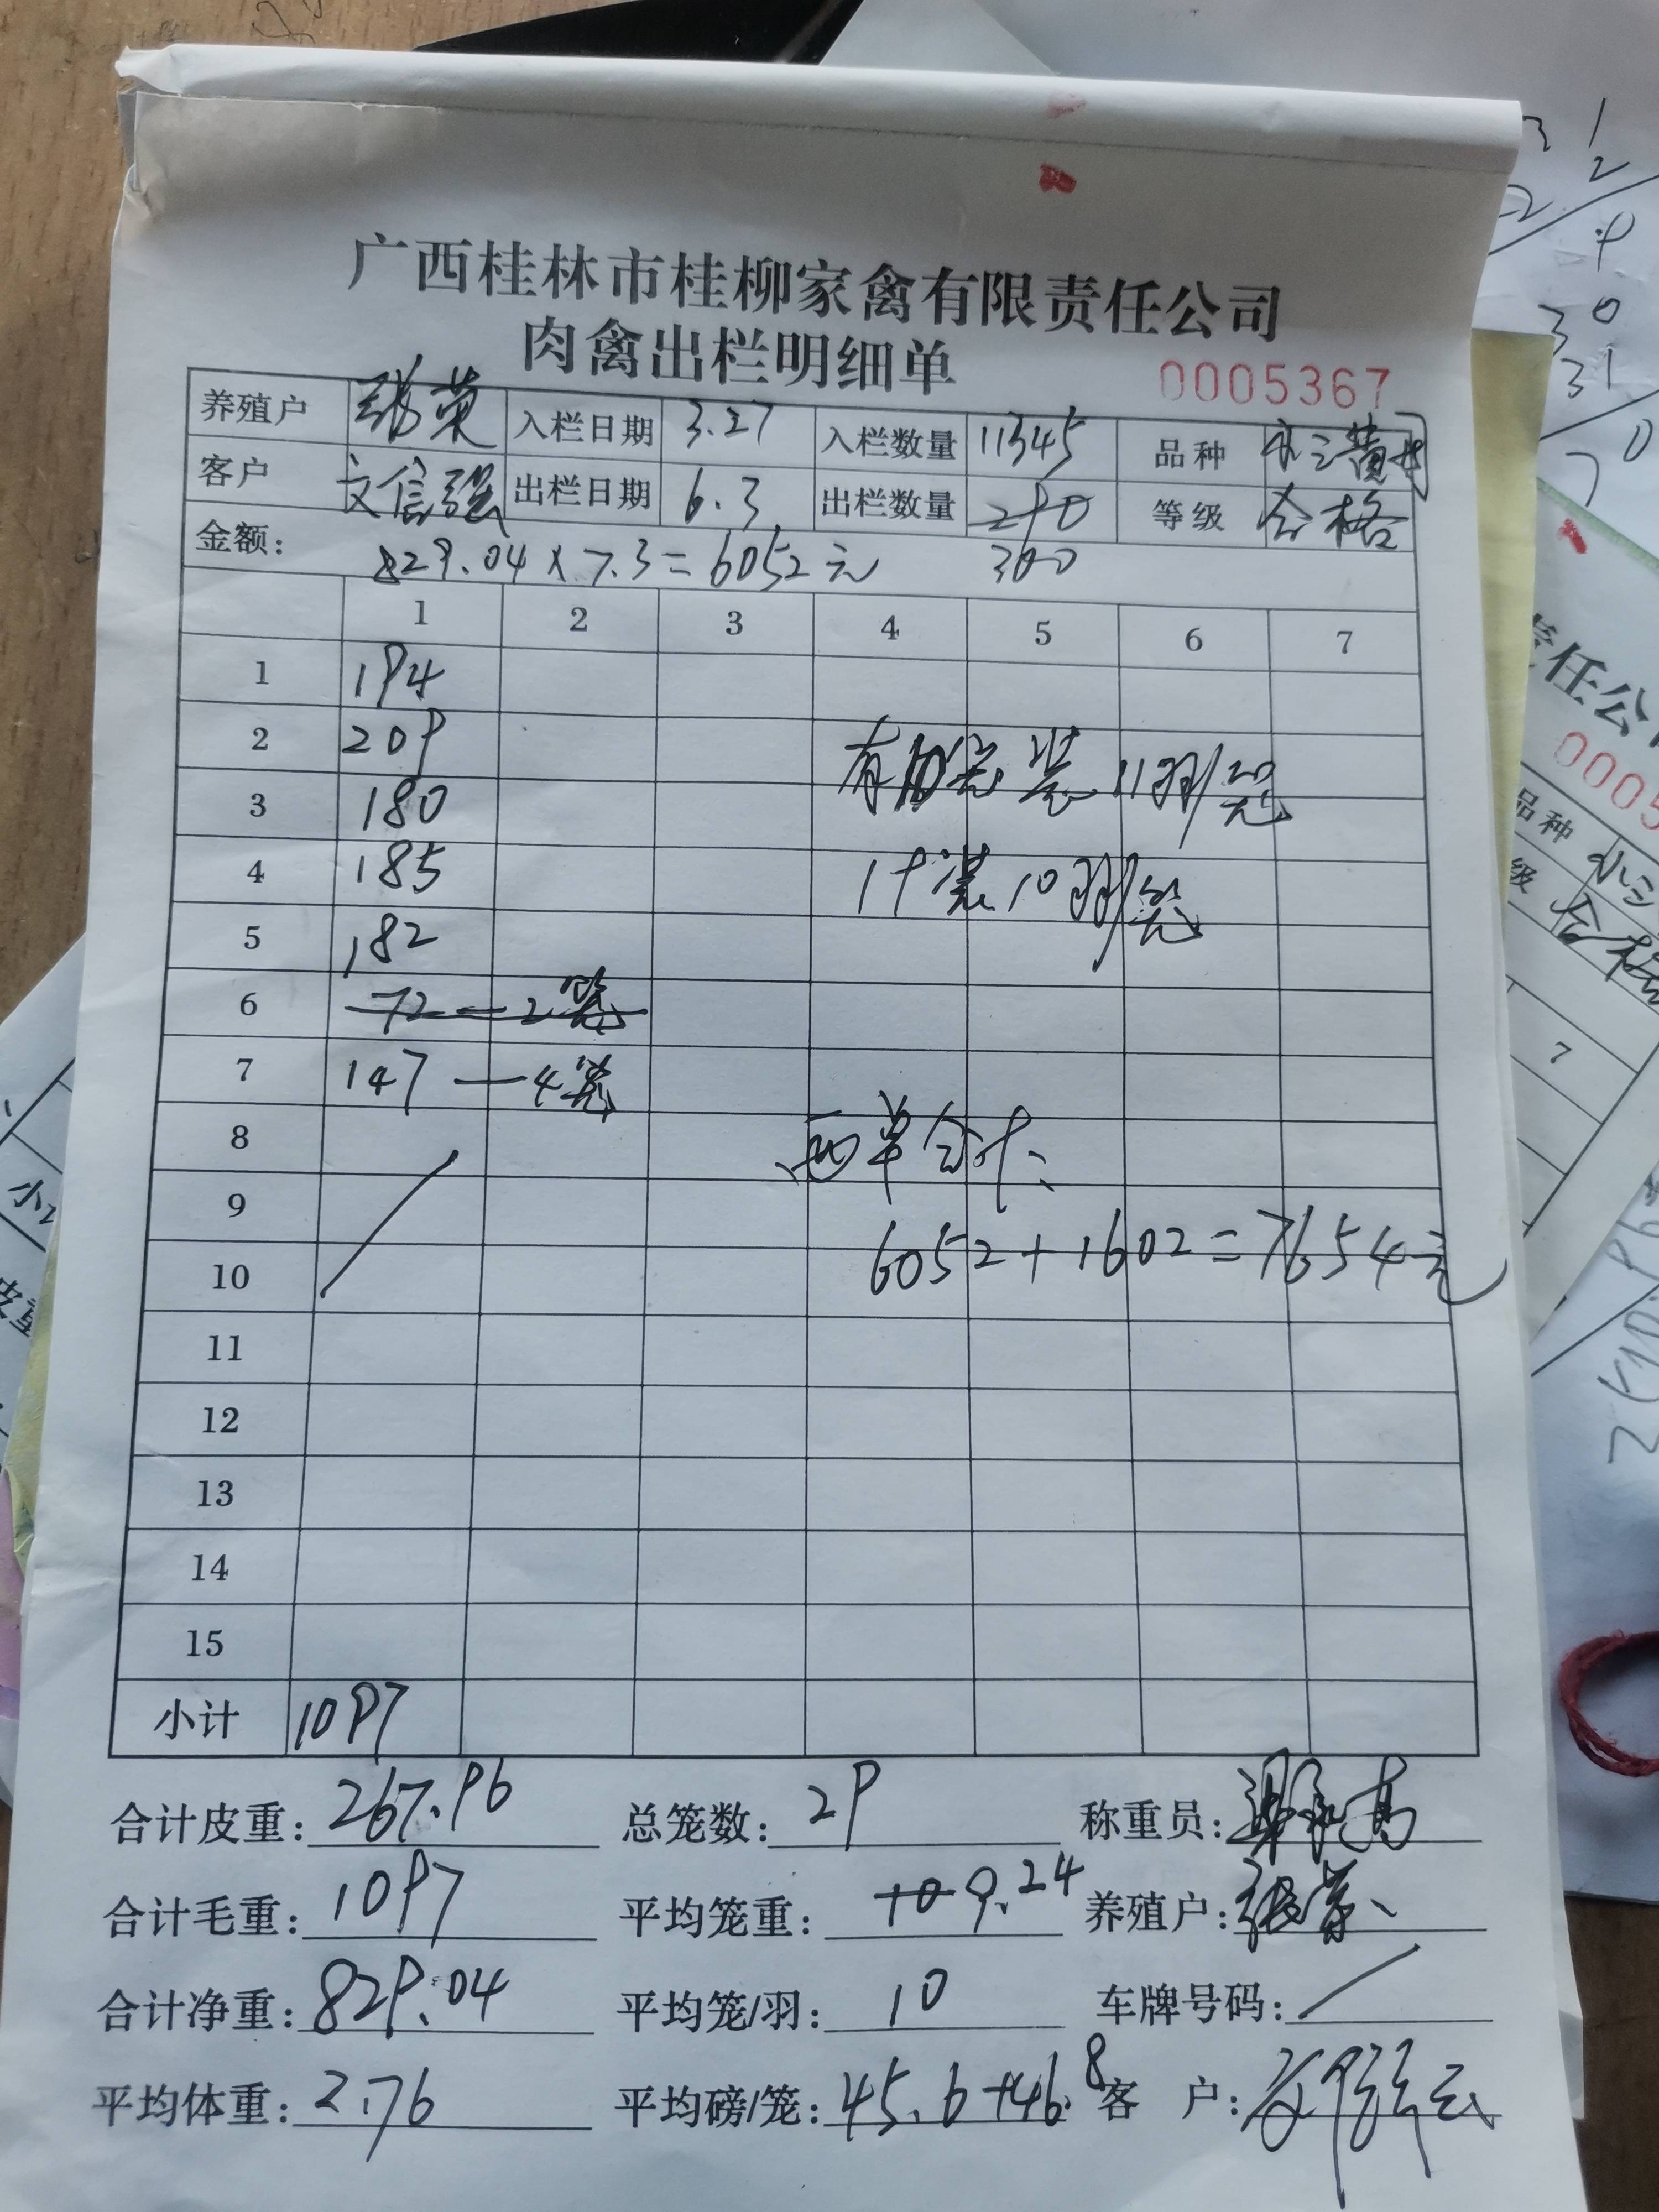 广西桂林市桂柳家禽有限责任公司
肉禽出栏明细单
0005367
养殖户 张荣 入栏日期 3.27 入栏数量 11345 品种
客户 文信强 出栏日期 6.3 出栏数量 290 等级 合格
金额: 829.04 x 7.3 = 6052元 300
1 2 3 4 5 6 7
1 194
2 209
3 180
有 装 11羽/笼
4 185
19装10羽/笼
5 182
6 72 — 2笼
7 147 — 4笼
8
两单合计:
9
6052 + 1602 = 7654元
10
11
12
13
14
15
小计 1097
合计皮重: 267.96 总笼数: 29 称重员:
合计毛重: 1097 平均笼重: 10 9.24 养殖户: 张荣
合计净重: 829.04 平均笼/羽: 10 车牌号码: /
平均体重: 2.76 平均磅/笼: 45.6+46.8 客 户:
责任公
0005
品种
级 合格
7